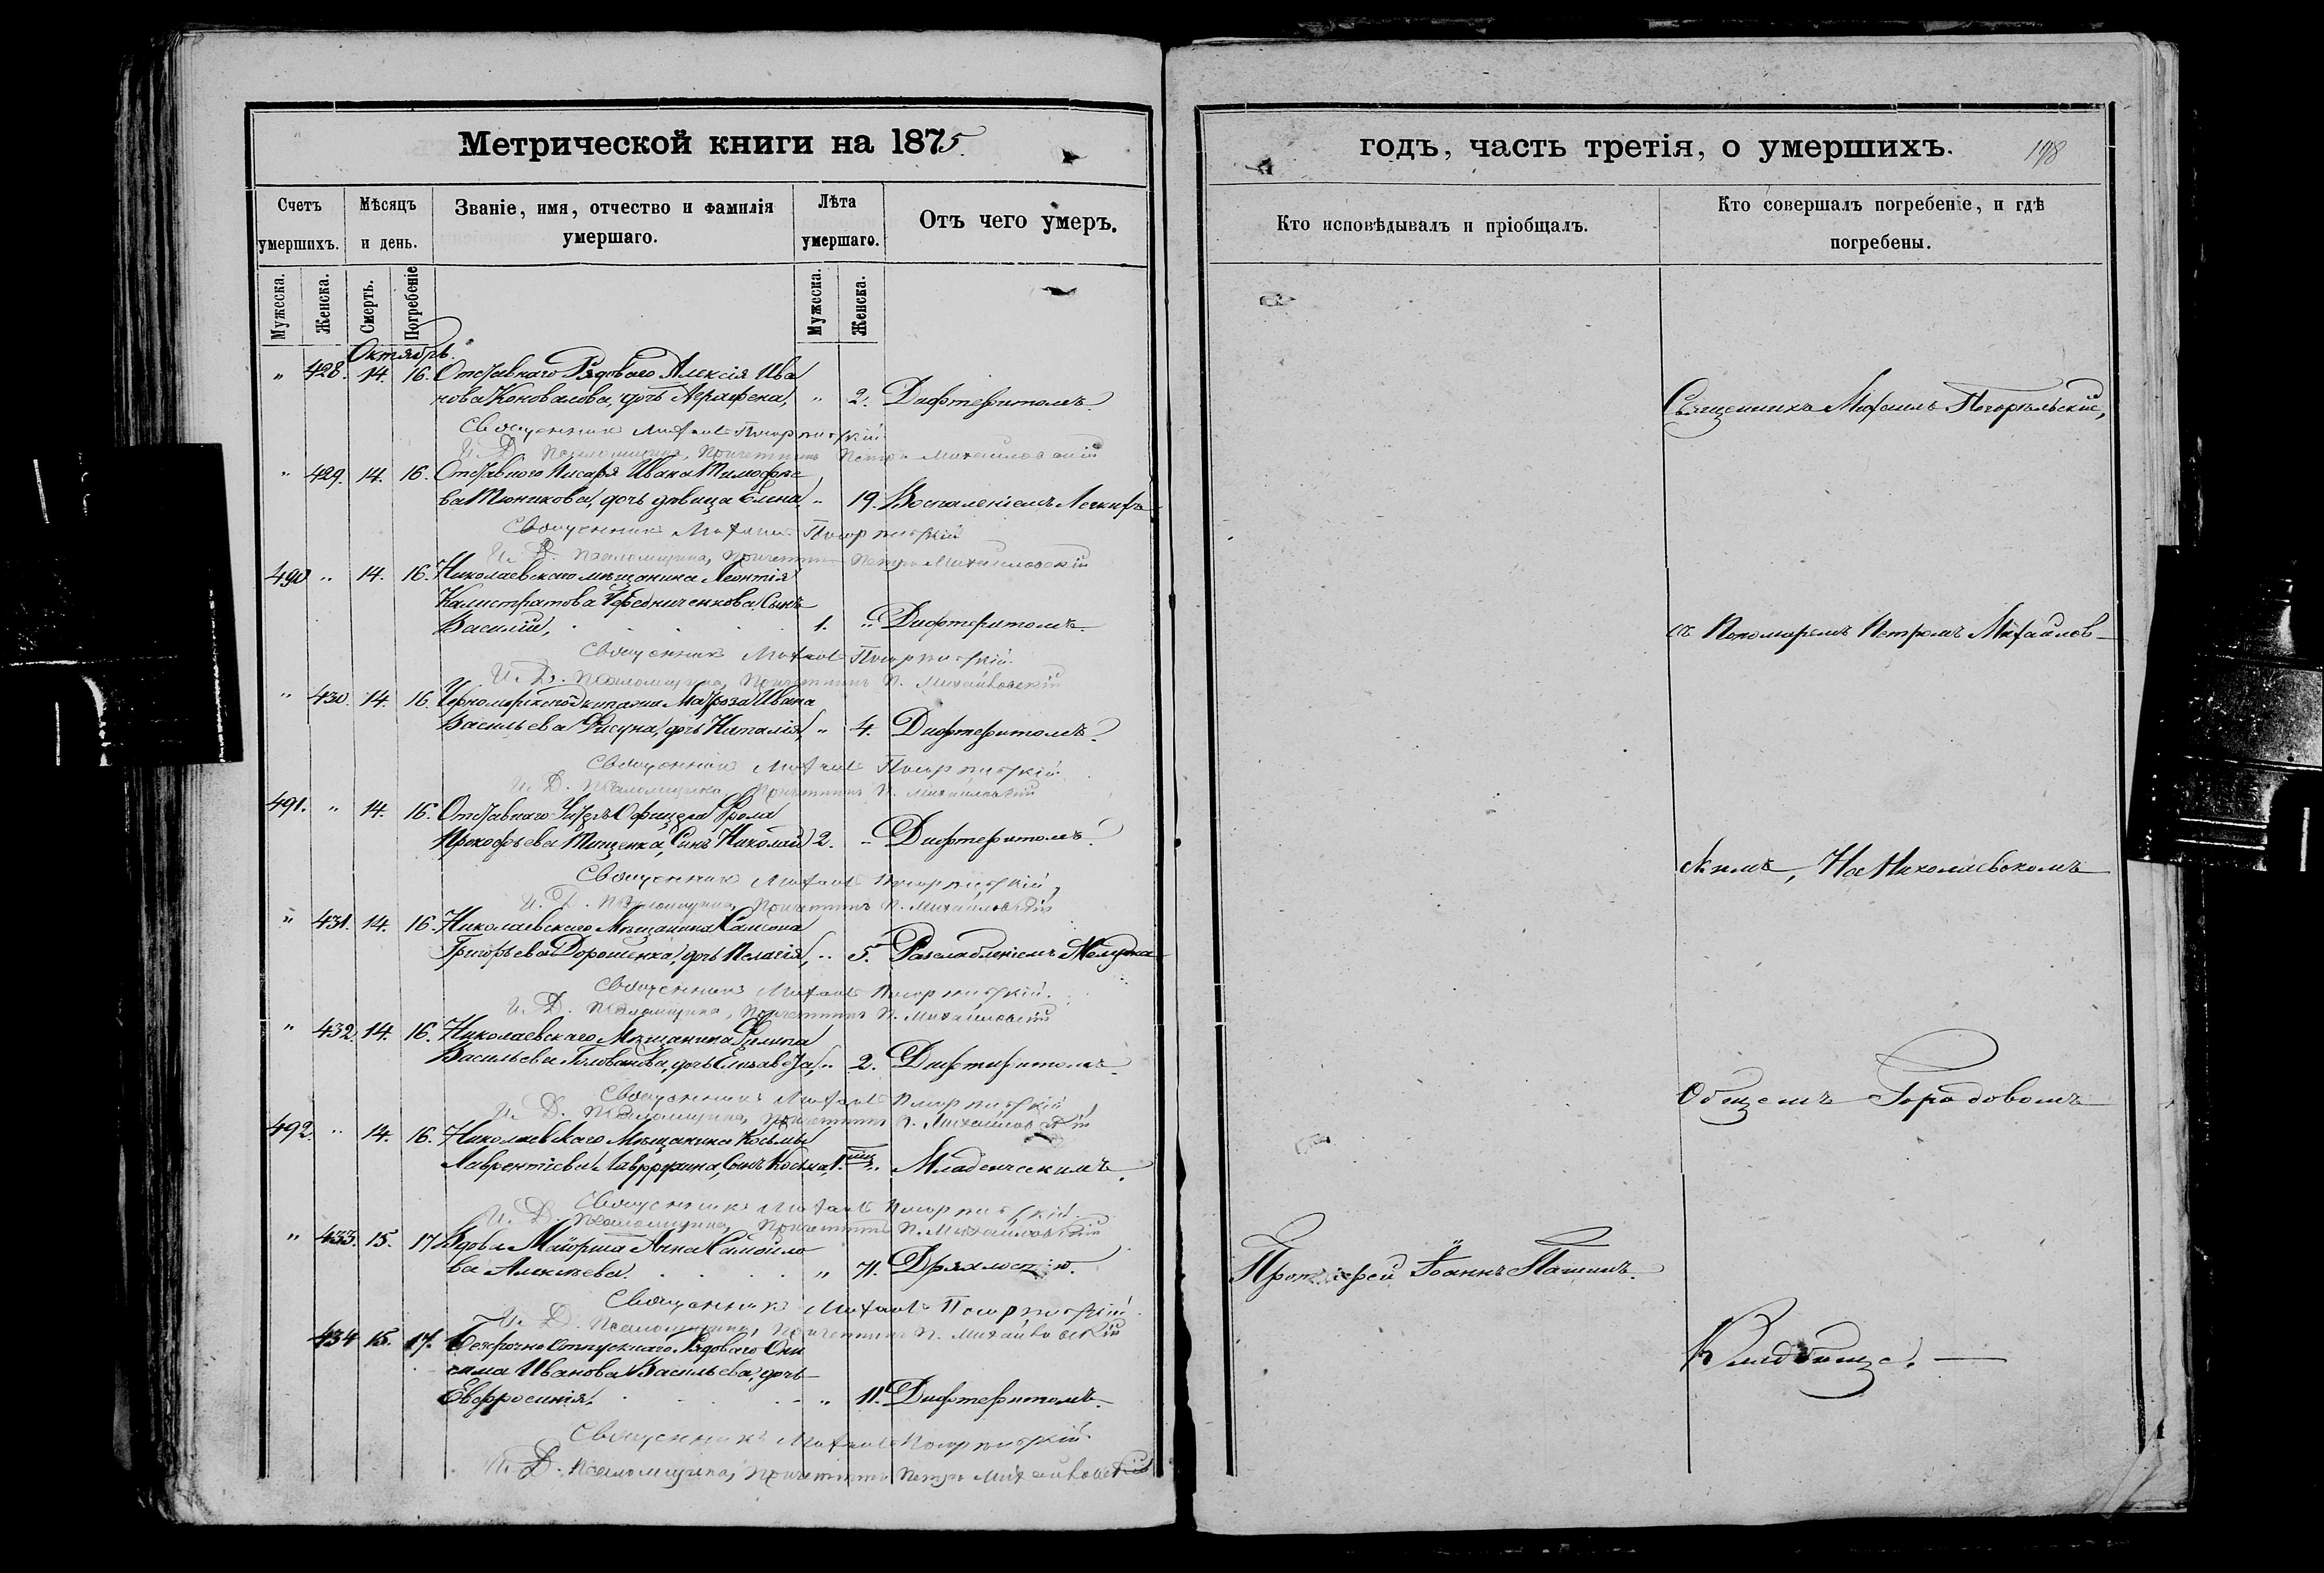 Метрической книги на 1875.
Счетъ умершихъ.
Мѣсяцъ и день.
Званіе, имя, отчество и фамилія умершаго.
Лѣта умершаго.
Отъ чего умеръ.
Мужеска.
Женска.
Смерть.
Погребеніе
Мужеска.
Женска.
Октябрь.
" 428. 14. 16. Отставнаго Рядоваго Алексія Ива
нова Коновалова, дочь Аграфена, " 2. Дифтеритомъ.
Священникъ Михаилъ Погорѣльскій
И. Д. Псаломщика, Причетникъ Петръ Михайловскій
" 429. 14. 16. Отставного Писаря Ивана Тимофее
ва Тюникова, дочь девица Елена " 19. Воспаленіемъ Легкихъ
Священникъ Михаилъ Погорѣльскій
И. Д. Псаломщика, Причетникъ Петръ Михайловскій
490 " 14. 16. Николаевскаго мѣщанина Леонтія
Калистратова Чередниченкова Сынъ
Василій, 1. " Дифтеритомъ.
Священникъ Михаилъ Погорѣльскій.
И. Д. Псаломщика, Причетникъ П. Михайловскій
" 430. 14. 16. Черноморскаго Экипажа Матроза Ивана
Васильева Рисуна, дочь Наталія, " 4. Дифтеритомъ.
Священникъ Михаилъ Погорѣльскій
И. Д. Псаломщика, Причетникъ П. Михайловскій
491. " 14. 16. Отставнаго Унтеръ Офицера Фрола
Прокофьева Тищенка, Сынъ Николай 2. " Дифтеритомъ.
Священникъ Михаилъ Погорѣльскій,
И. Д. Псаломщика, Причетникъ П. Михайловскій
" 431. 14. 16. Николаевскаго Мѣщанина Самсона
Григорьева Дорошенка, дочь Пелагія, " 5. Разслабленіемъ Желудка
Священникъ Михаилъ Погорѣльскій.
И. Д. Псаломщика, Причетникъ П. Михайловскій
" 432. 14. 16. Николаевскаго Мѣщанина Филипа
Васильева Голованова, дочь Елизавета, " 2. Дифтеритомъ.
Священникъ Михаилъ Погорѣльскій
И. Д. Псаломщика, Причетникъ П. Михайловскій
492. " 14. 16. Николаевскаго Мѣщанина Косьмы
Лаврентіева Сынъ Косьма, " Младенческимъ.
Священникъ Михаилъ Погорѣльскій.
И. Д. Псаломщика, Причетникъ П. Михайловскій
" 433. 15. 17 Вдова Маіорша Анна Самойло
ва Алексѣева. " 71. Дряхлостію.
Священникъ Михаилъ Погорѣльскій.
И. Д. Псаломщика, Причетникъ П. Михайловскій
434 15. 17. Безсрочно Отпускнаго Рядоваго Они
сима Иванова Васильева, дочь
Евфросинія, " 11. Дифтеритомъ.
Священникъ Михаилъ Погорѣльскій.
И. Д. Псаломщика, Причетникъ Петръ Михайловскій
годъ, часть третія, о умершихъ. 178
Кто исповѣдывалъ и пріобщалъ.
Кто совершалъ погребеніе, и гдѣ погребены.
Священникъ Михаилъ Погорѣльскій,
съ Пономаремъ Петромъ Михайлов-
скимъ, На Николаевскомъ
Общемъ Городовомъ
Протоіерей Іоаннъ Пашинъ.
Кладбище.